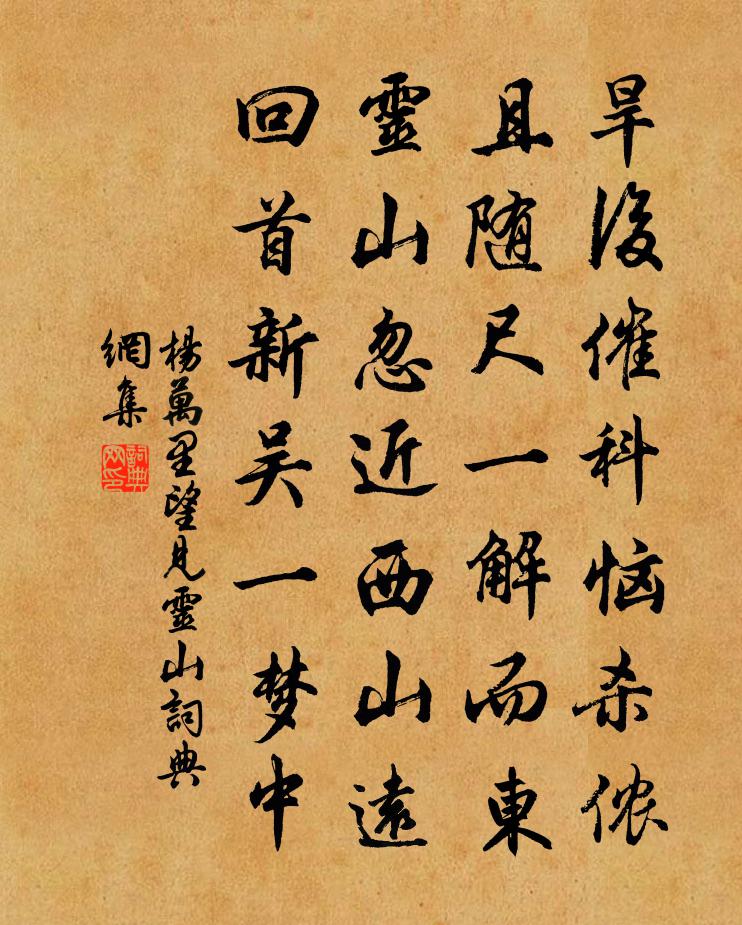 旱後催科恼杀侬
且随尺一解而東
靈山忽近西山遠
回首新吴一梦中
楊萬里望見靈山詞典
網集
詞典
网印